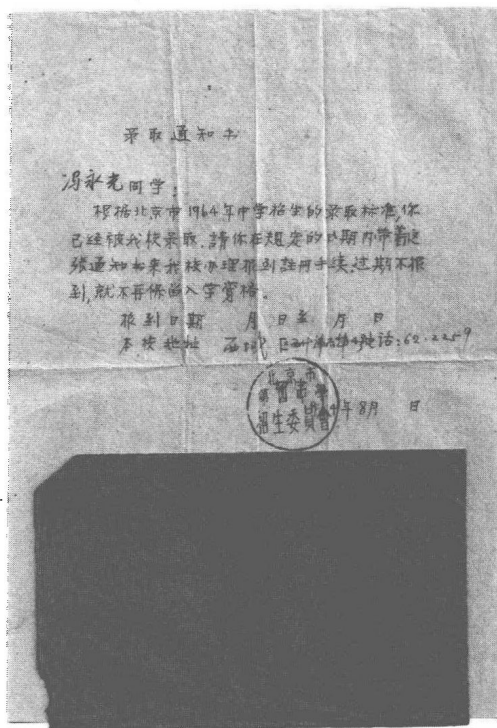 录取通知书
冯永光同学:
根据北京市1964年中学招生的录取标准,你
已经被我校录取。請你在規定的日期内带着这
张通知书来我校办理报到註册手续,过期不报
到,就不再保留入学資格。
报到日期 月 日至 月 日
本校地址 西城区 电话:62.2259
北京市
招生委員會
4年8月 日